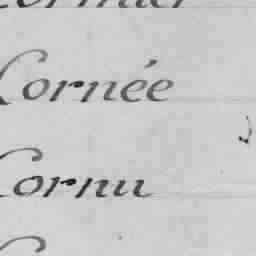 Cornée
Cornu